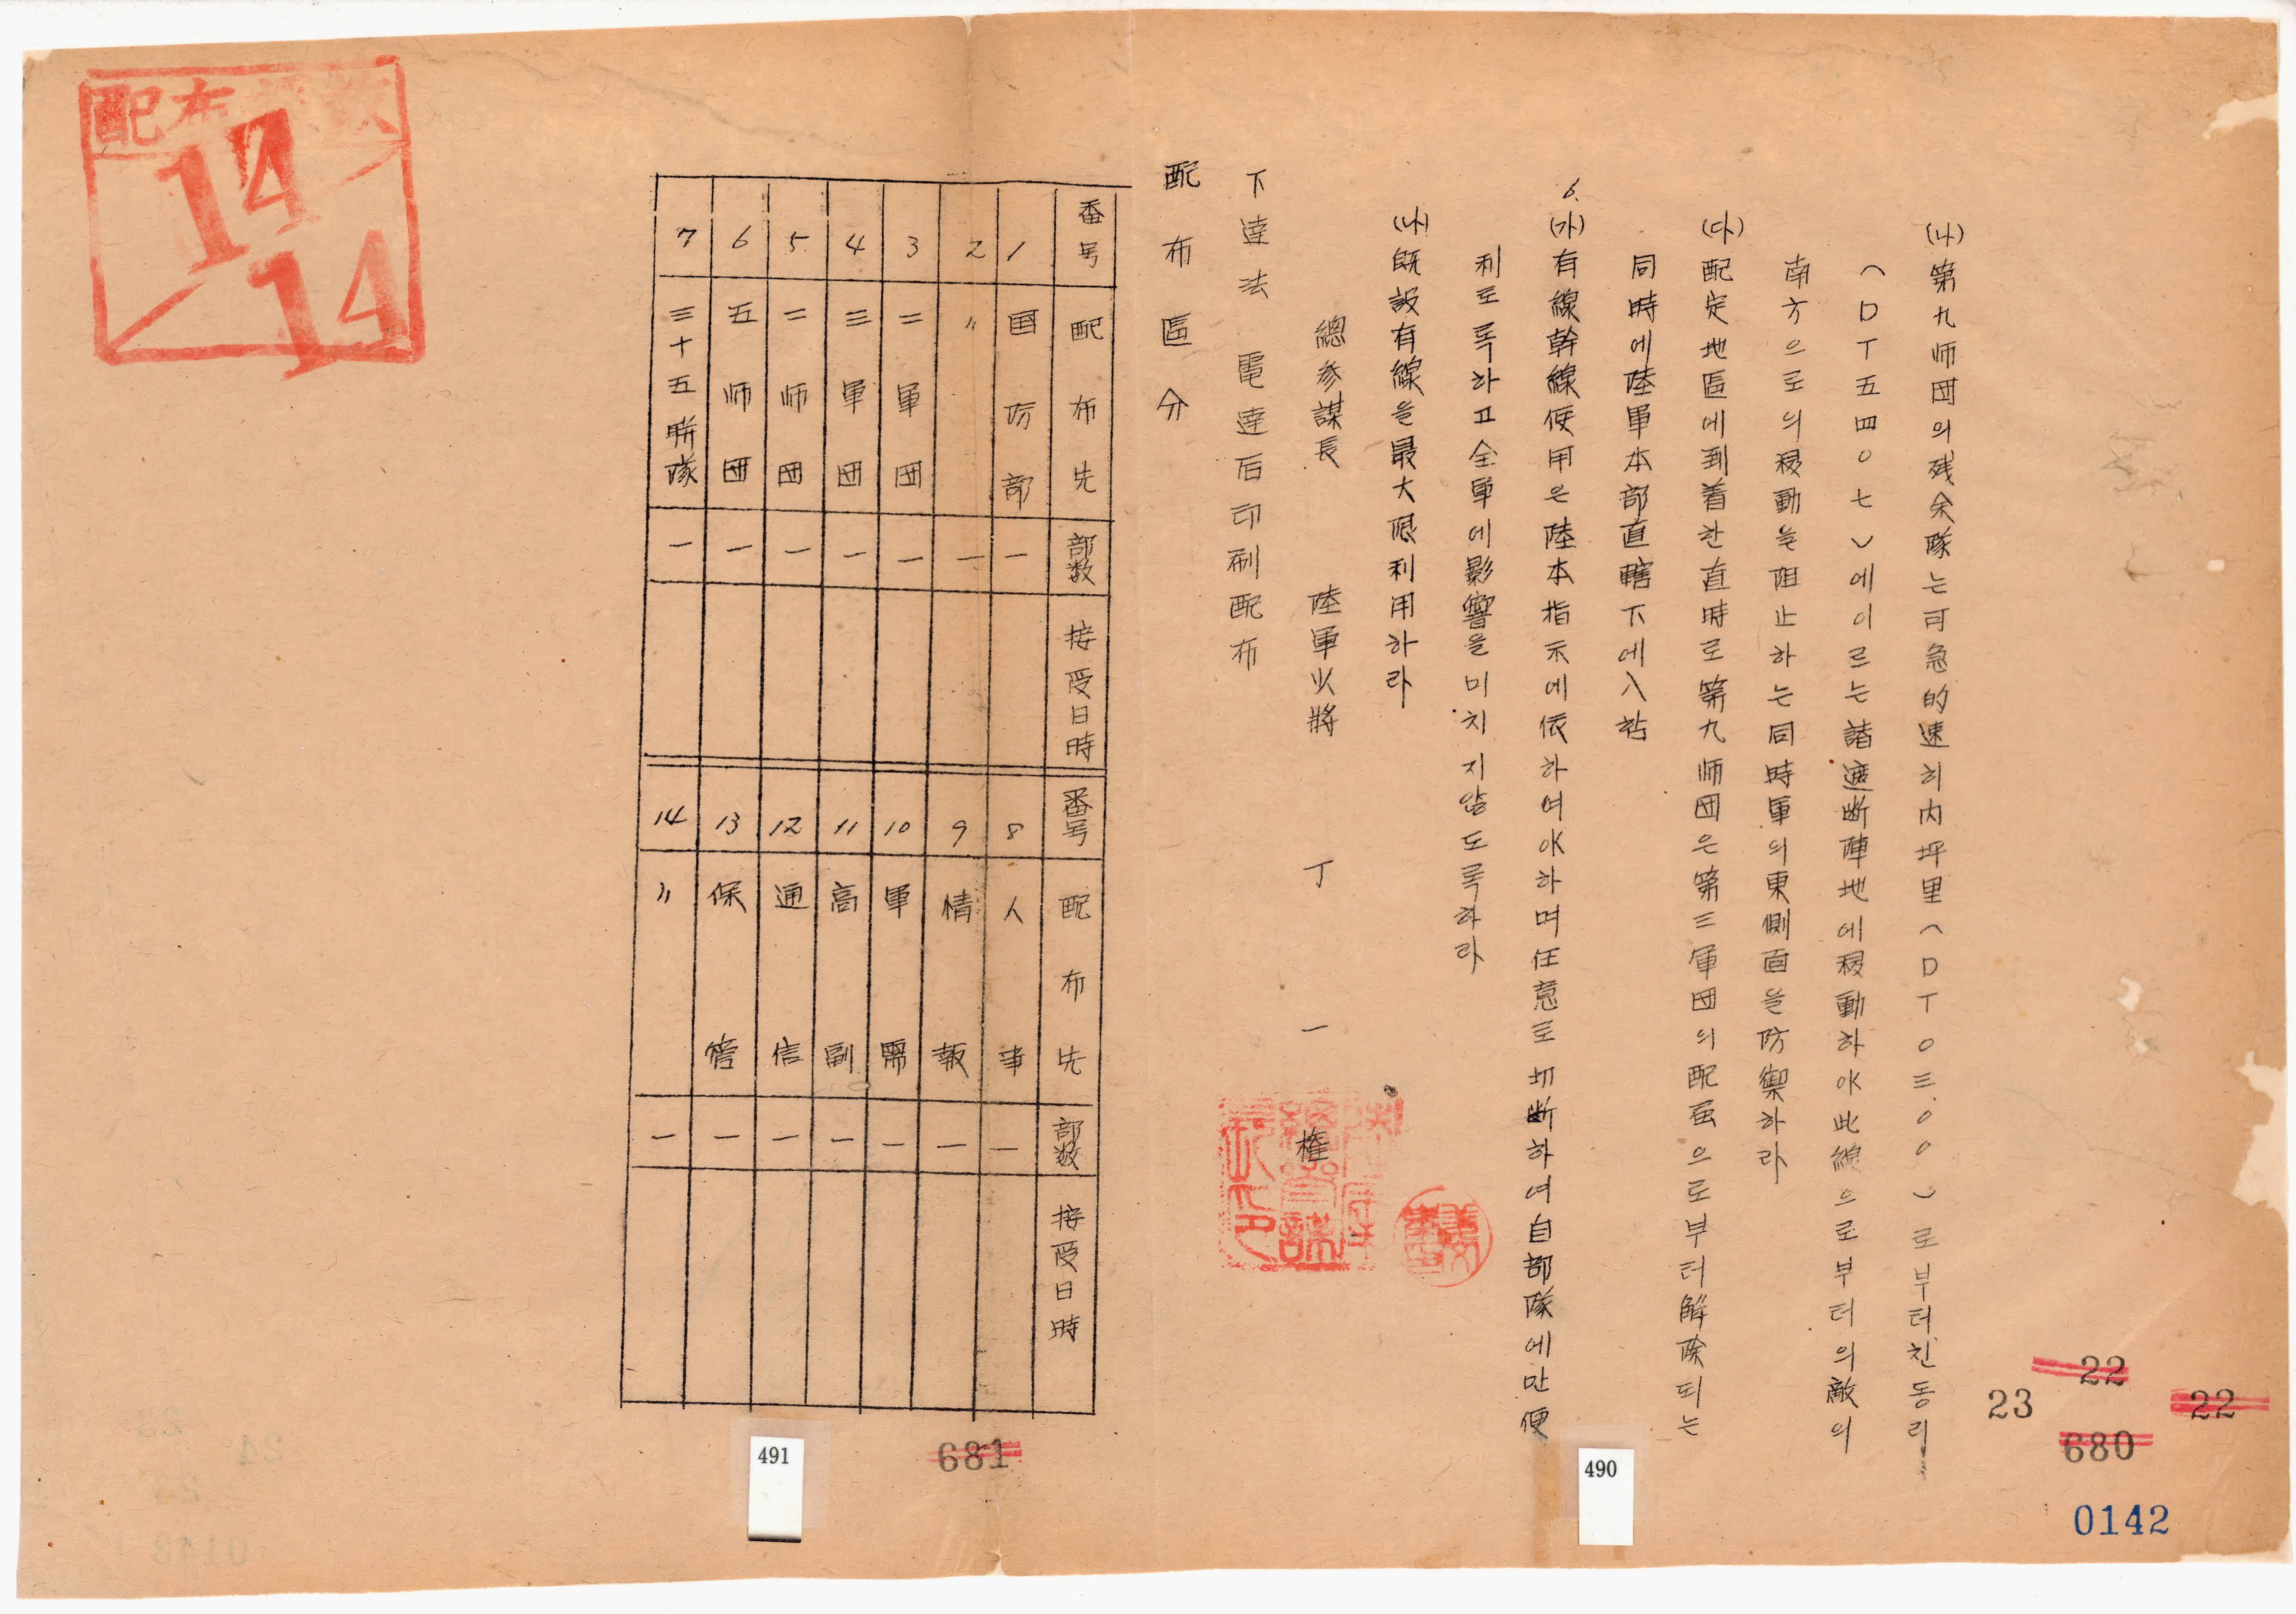 (나) 第九师団의残余隊는可急的速히内坪里(DT〇三〇〇)로부터친동리
(DT五四〇七)에이르는諸遮断陣地에移動하야此線으로부터의敵의
南方으로의移動을阻止하는同時軍의東側面을防禦하라
(다) 配定地區에到着한直時로第九师団은第三軍団의配屈으로부터解除되는
同時에陸軍本部直轄下에入함
6. (가) 有線幹線使用은陸本指示에依하여야하며任意로切断하여自部隊에만便
利토록하고全軍에影響을미치지않도록하라
(나) 既設有線을最大限利用하라
總参謀長 陸軍少將 丁 一 權
下達法 電達后印刷配布
配布區分
番号 配布先 部数 接受日時
1 国防部 一
2 〃 一
3 二軍団 一
4 三軍団 一
5 二师団 一
6 五师団 一
7 三十五聯隊 一
番号 配布先 部数 接受日時
8 人事 一
9 情報 一
10 軍需 一
11 高副 一
12 通信 一
13 保管 一
14 〃 一
配布
14
14
491
681
490
22
23
22
680
0142